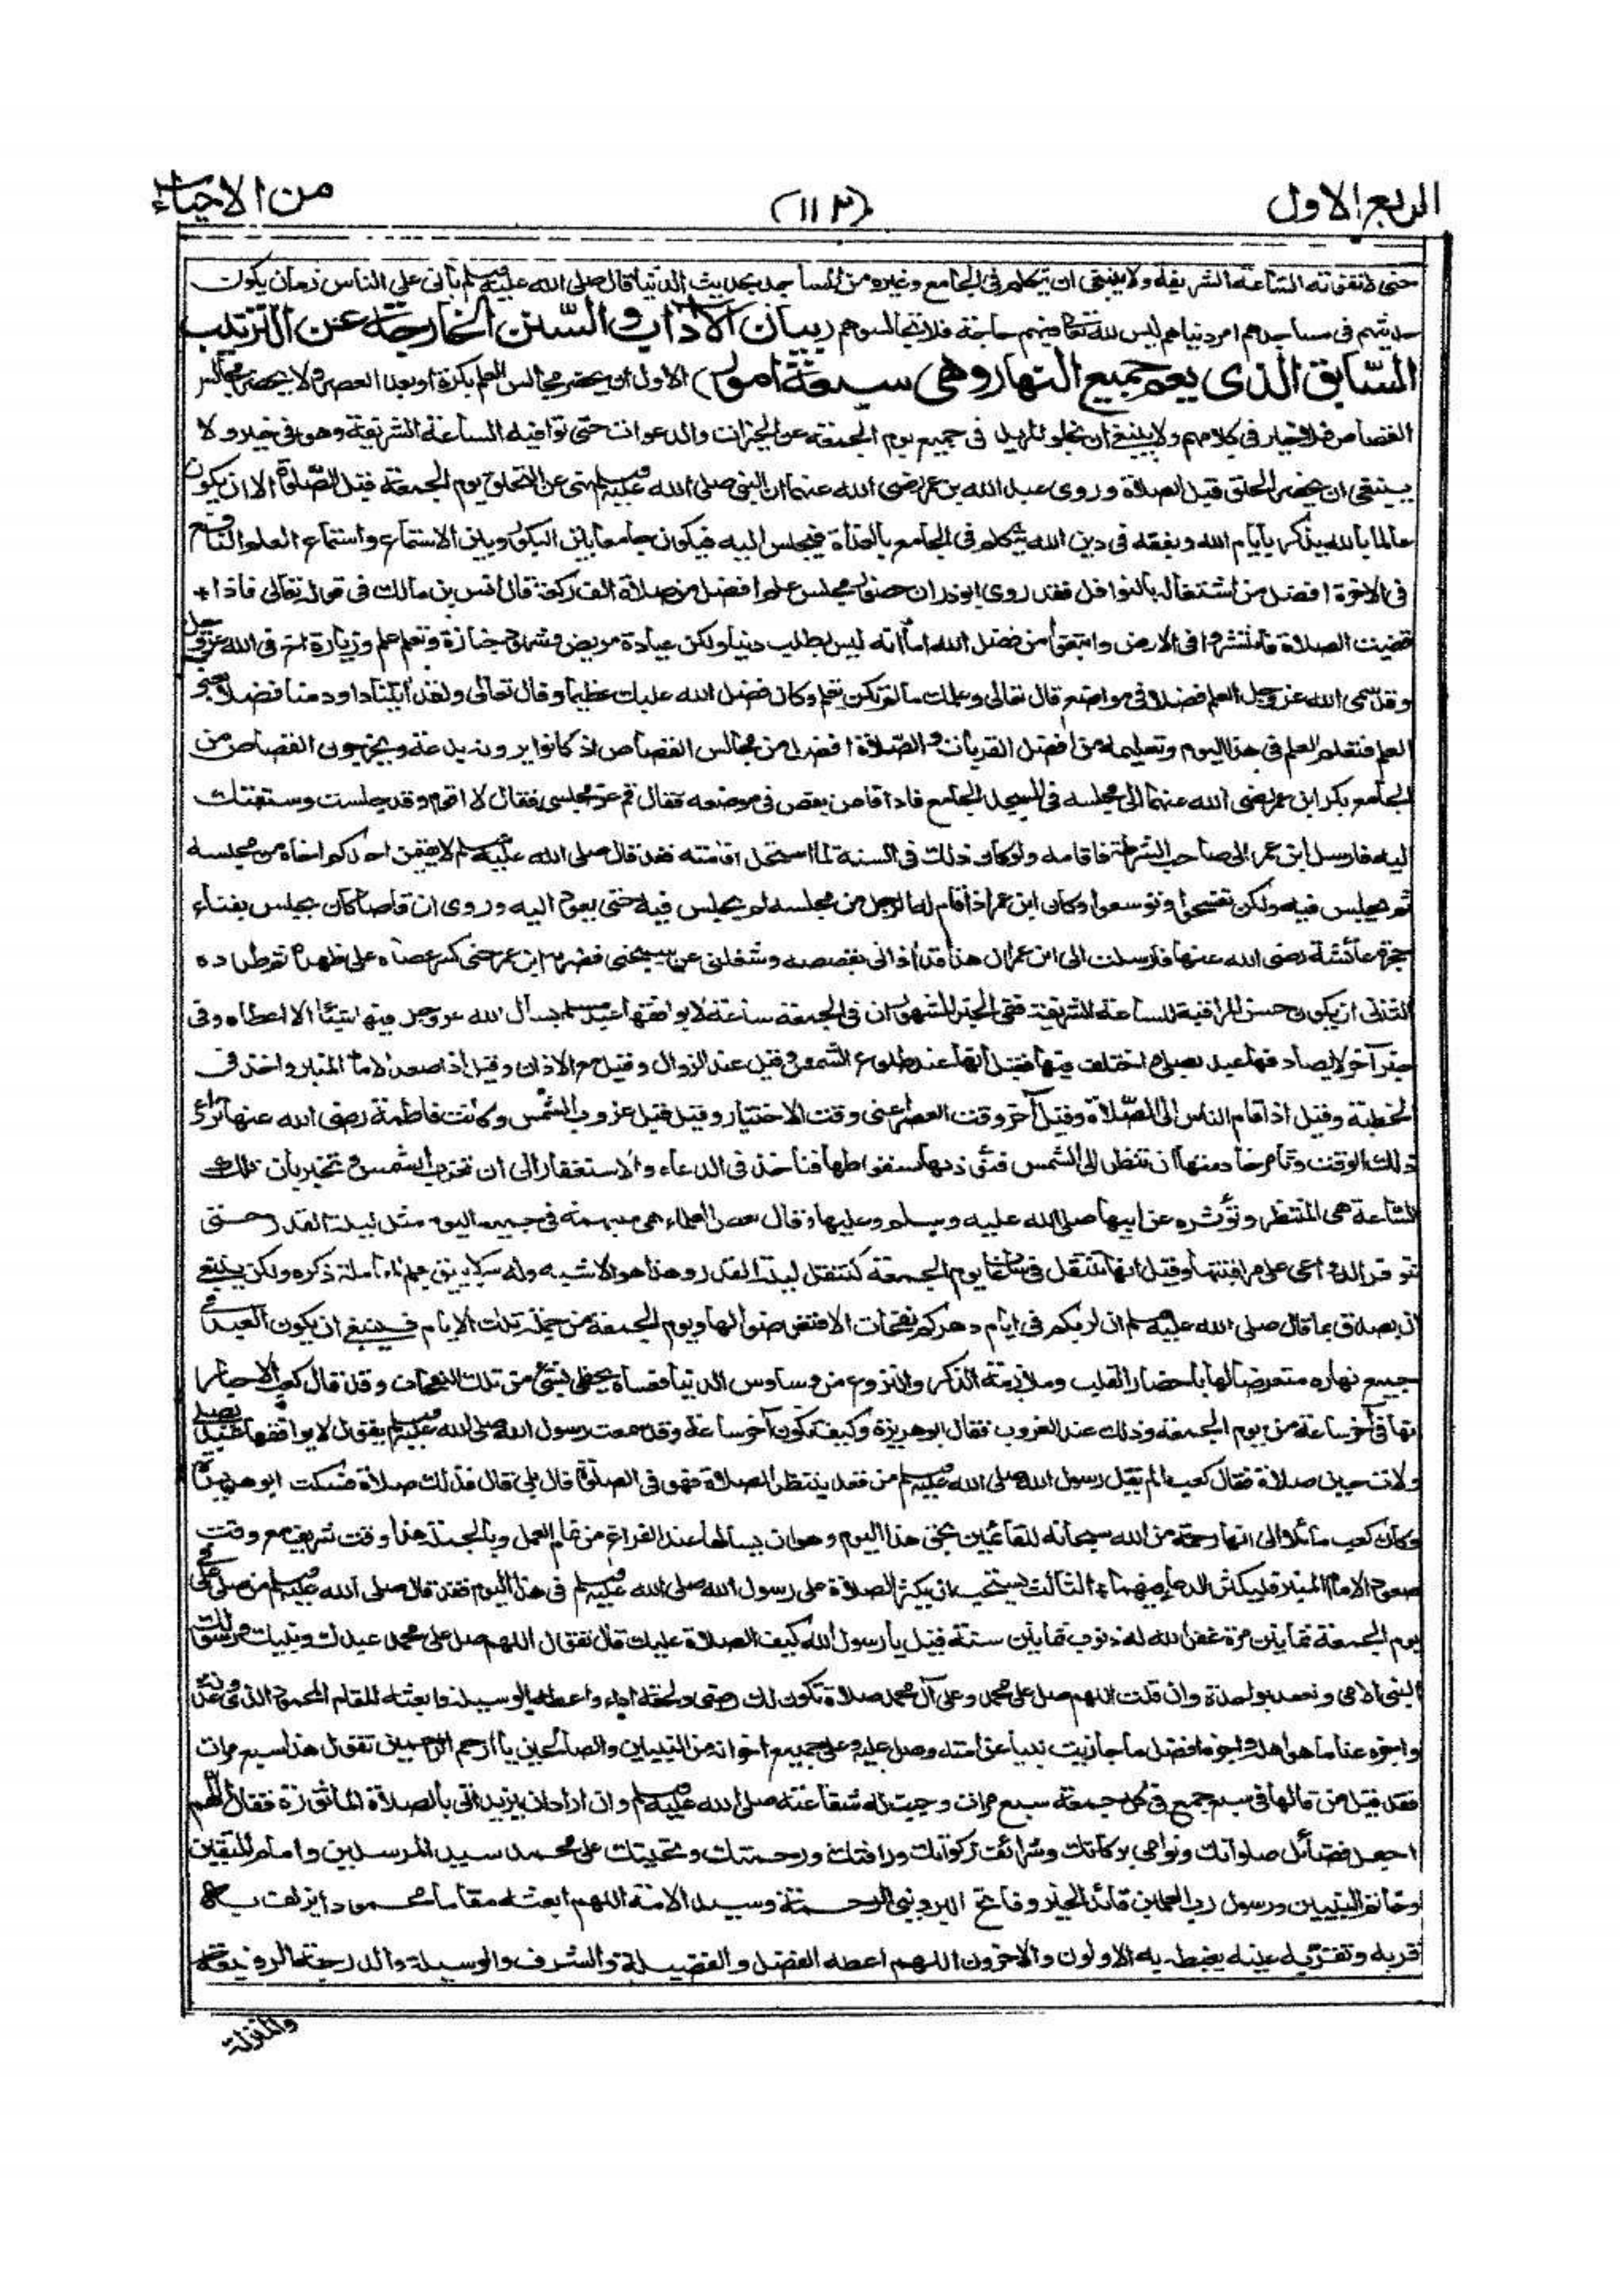 الربع الاول
(١١٣)
من الاحياء
حتى لا تفوته الساعة الشريفة ولا ينبغى ان يتكلم فى الجامع وغيره من المساجد بحديث الدنيا قال صلى الله عليه وسلم يأتى على الناس زمان يكون
حديثهم فى مساجدهم امر دنياهم ليس لله تعالى فيهم حاجة فلا تجالسوهم (بيان الآداب والسنن الخارجة عن الترتيب
السابق الذى يعم جميع النهار وهى سبعة امور) الاول ان يحضر مجالس العلم بكرة او بعد العصر ولا يحضر مجالس
القصاص فلا خير فى كلامهم ولا ينبغى ان يخلو المريد فى جميع يوم الجمعة عن الخيرات والدعوات حتى توافيه الساعة الشريفة وهو فى خير ولا
ينبغى ان يحضر الحلق قبل الصلاة وروى عبد الله بن عمر رضى الله عنهما ان النبى صلى الله عليه وسلم نهى عن التحلق يوم الجمعة قبل الصلوة الا ان يكون
عالما بالله يذكر بايام الله ويفقه فى دين الله يتكلم فى الجامع بالغداة فيجلس اليه فيكون جامعا بين البكور وبين الاستماع واستماع العلم النافع
فى الآخرة افضل من اشتغاله بالنوافل فقد روى ابوذر ان حضور مجلس علم افضل من صلاة الف ركعة قال انس بن مالك فى قوله تعالى فاذا
قضيت الصلاة فانتشروا فى الارض وابتغوا من فضل الله اما انه ليس بطلب دنيا ولكن عيادة مريض وشهود جنازة وتعلم علم وزيارة اخ فى الله عز وجل
وقد سمى الله عز وجل العلم فضلا فى مواضع قال تعالى وعلمك ما لم تكن تعلم وكان فضل الله عليك عظيما وقال تعالى ولقد آتينا داود منا فضلا يعنى
العلم فتعلم العلم فى هذا اليوم وتعليمه من افضل القربات والصلاة افضل من مجالس القصاص اذ كانوا يرونه بدعة ويخرجون القصاص من
الجامع بكر ابن عمر رضى الله عنهما الى مجلسه فى المسجد الجامع فاذا قاص يقص فى موضعه فقال قم عن مجلسى فقال لا اقوم وقد جلست وسبقتك
اليه فارسل ابن عمر الى صاحب الشرطة فاقامه ولو كان ذلك فى السنة لما استحل اقامته فقد قال صلى الله عليه وسلم لا يقيمن احدكم اخاه من مجلسه
ثم يجلس فيه ولكن تفسحوا وتوسعوا وكان ابن عمر اذا قام له الرجل من مجلسه لم يجلس فيه حتى يعود اليه وروى ان قاصا كان يجلس بفناء
حجرة عائشة رضى الله عنها فارسلت الى ابن عمر ان هذا قد آذانى بقصصه وشغلنى عن سبحتى فضربه ابن عمر حتى كسر عصاه على ظهره ثم طرده
الثانى ان يكون حسن المراقبة للساعة الشريفة ففى الخبر المشهور ان فى الجمعة ساعة لا يوافقها عبد مسلم يسأل الله عز وجل فيها شيئا الا اعطاه وفى
خبر آخر لا يصادفها عبد يصلى واختلف فيها فقيل انها عند طلوع الشمس وقيل عند الزوال وقيل مع الاذان وقيل اذا صعد الامام المنبر واخذ فى
الخطبة وقيل اذا قام الناس الى الصلاة وقيل آخر وقت العصر اعنى وقت الاختيار وقيل قبل غروب الشمس وكانت فاطمة رضى الله عنها تراعى
ذلك الوقت وتأمر خادمتها ان تنظر الى الشمس فتؤذنها بسقوطها فتأخذ فى الدعاء والاستغفار الى ان تغرب الشمس وتخبر بان تلك
الساعة هى المنتظرة وتؤثره عن ابيها صلى الله عليه وسلم وعليها وقال بعض العلماء هى مبهمة فى جميع اليوم مثل ليلة القدر حتى
تتوفر الدواعى على مراقبتها وقيل انها تنتقل فى ساعات يوم الجمعة كتنقل ليلة القدر وهذا هو الاشبه وله سر لا يليق بعلم المعاملة ذكره ولكن ينبغى
ان يصدق بما قال صلى الله عليه وسلم ان لربكم فى ايام دهركم نفحات الا فتعرضوا لها ويوم الجمعة من جملة تلك الايام فينبغى ان يكون العبد فى
جميع نهاره متعرضا لها باحضار القلب وملازمة الذكر والنزوع من وساوس الدنيا فعساه يحظى بشئ من تلك النفحات وقد قال كعب الاحبار
انها فى آخر ساعة من يوم الجمعة وذلك عند الغروب فقال ابو هريرة وكيف تكون آخر ساعة وقد سمعت رسول الله صلى الله عليه وسلم يقول لا يوافقها عبد يصلى
ولات حين صلاة فقال كعب الم يقل رسول الله صلى الله عليه وسلم من قعد ينتظر الصلاة فهو فى الصلوة قال بلى قال فذلك صلاة فسكت ابو هريرة
وكان كعب مائلا الى انها رحمة من الله سبحانه للقائمين بحق هذا اليوم وهو ان يسألها عند الفراغ من تمام العمل وبالجملة هذا وقت شريف مع وقت
صعود الامام المنبر فليكثر الدعاء فيهما الثالث يستحب ان يكثر الصلاة على رسول الله صلى الله عليه وسلم فى هذا اليوم فقد قال صلى الله عليه وسلم من صلى على فى
يوم الجمعة ثمانين مرة غفر الله له ذنوب ثمانين سنة قيل يا رسول الله كيف الصلاة عليك قال تقول اللهم صل على محمد عبدك ونبيك ورسولك
النبى الامى وتعقد واحدة وان قلت اللهم صل على محمد وعلى آل محمد صلاة تكون لك رضى ولحقه اداء واعطه الوسيلة وابعثه المقام المحمود الذى وعدته
واجزه عنا ما هو اهله واجزه افضل ما جازيت نبيا عن امته وصل عليه وعلى جميع اخوانه من النبيين والصالحين يا ارحم الراحمين تقول هذا سبع مرات
فقد قيل من قالها فى سبع جمع فى كل جمعة سبع مرات وجبت له شفاعته صلى الله عليه وسلم وان اراد ان يزيد اتى بالصلاة المأثورة فقال اللهم
اجعل فضائل صلواتك ونوامى بركاتك وشرائف زكواتك ورأفتك ورحمتك وتحيتك على محمد سيد المرسلين وامام المتقين
وخاتم النبيين ورسول رب العلمين قائد الخير وفاتح البر ونبى الرحمة وسيد الامة اللهم ابعثه مقاما محمودا تزلف به
قربه وتقر به عينه يغبطه به الاولون والآخرون اللهم اعطه الفضل والفضيلة والشرف والوسيلة والدرجة الرفيعة
والمنزلة